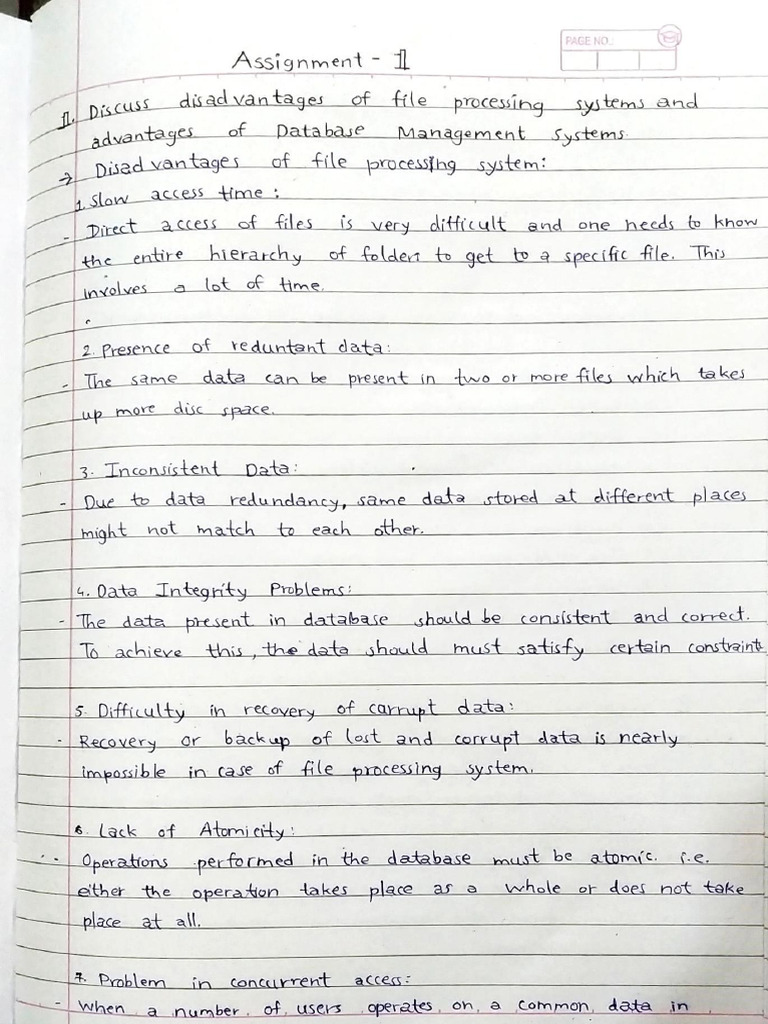 PAGE NO.:
Assignment - 1
1. Discuss disadvantages of file processing systems and
advantages of Database Management Systems.
→ Disadvantages of file processing system:
1. Slow access time :
- Direct access of files is very difficult and one needs to know
the entire hierarchy of folders to get to a specific file. This
involves a lot of time.
2. Presence of reduntant data:
- The same data can be present in two or more files which takes
up more disc space.
3. Inconsistent Data:
- Due to data redundancy, same data stored at different places
might not match to each other.
4. Data Integrity Problems:
- The data present in database should be consistent and correct.
To achieve this, the data should must satisfy certain constraint
5. Difficulty in recovery of carrupt data:
- Recovery or backup of lost and corrupt data is nearly
impossible in case of file processing system.
6. Lack of Atomicity:
- Operations performed in the database must be atomic. i.e.
either the operation takes place as a whole or does not take
place at all.
7. Problem in concurrent access:
- When a number of users operates on a common data in